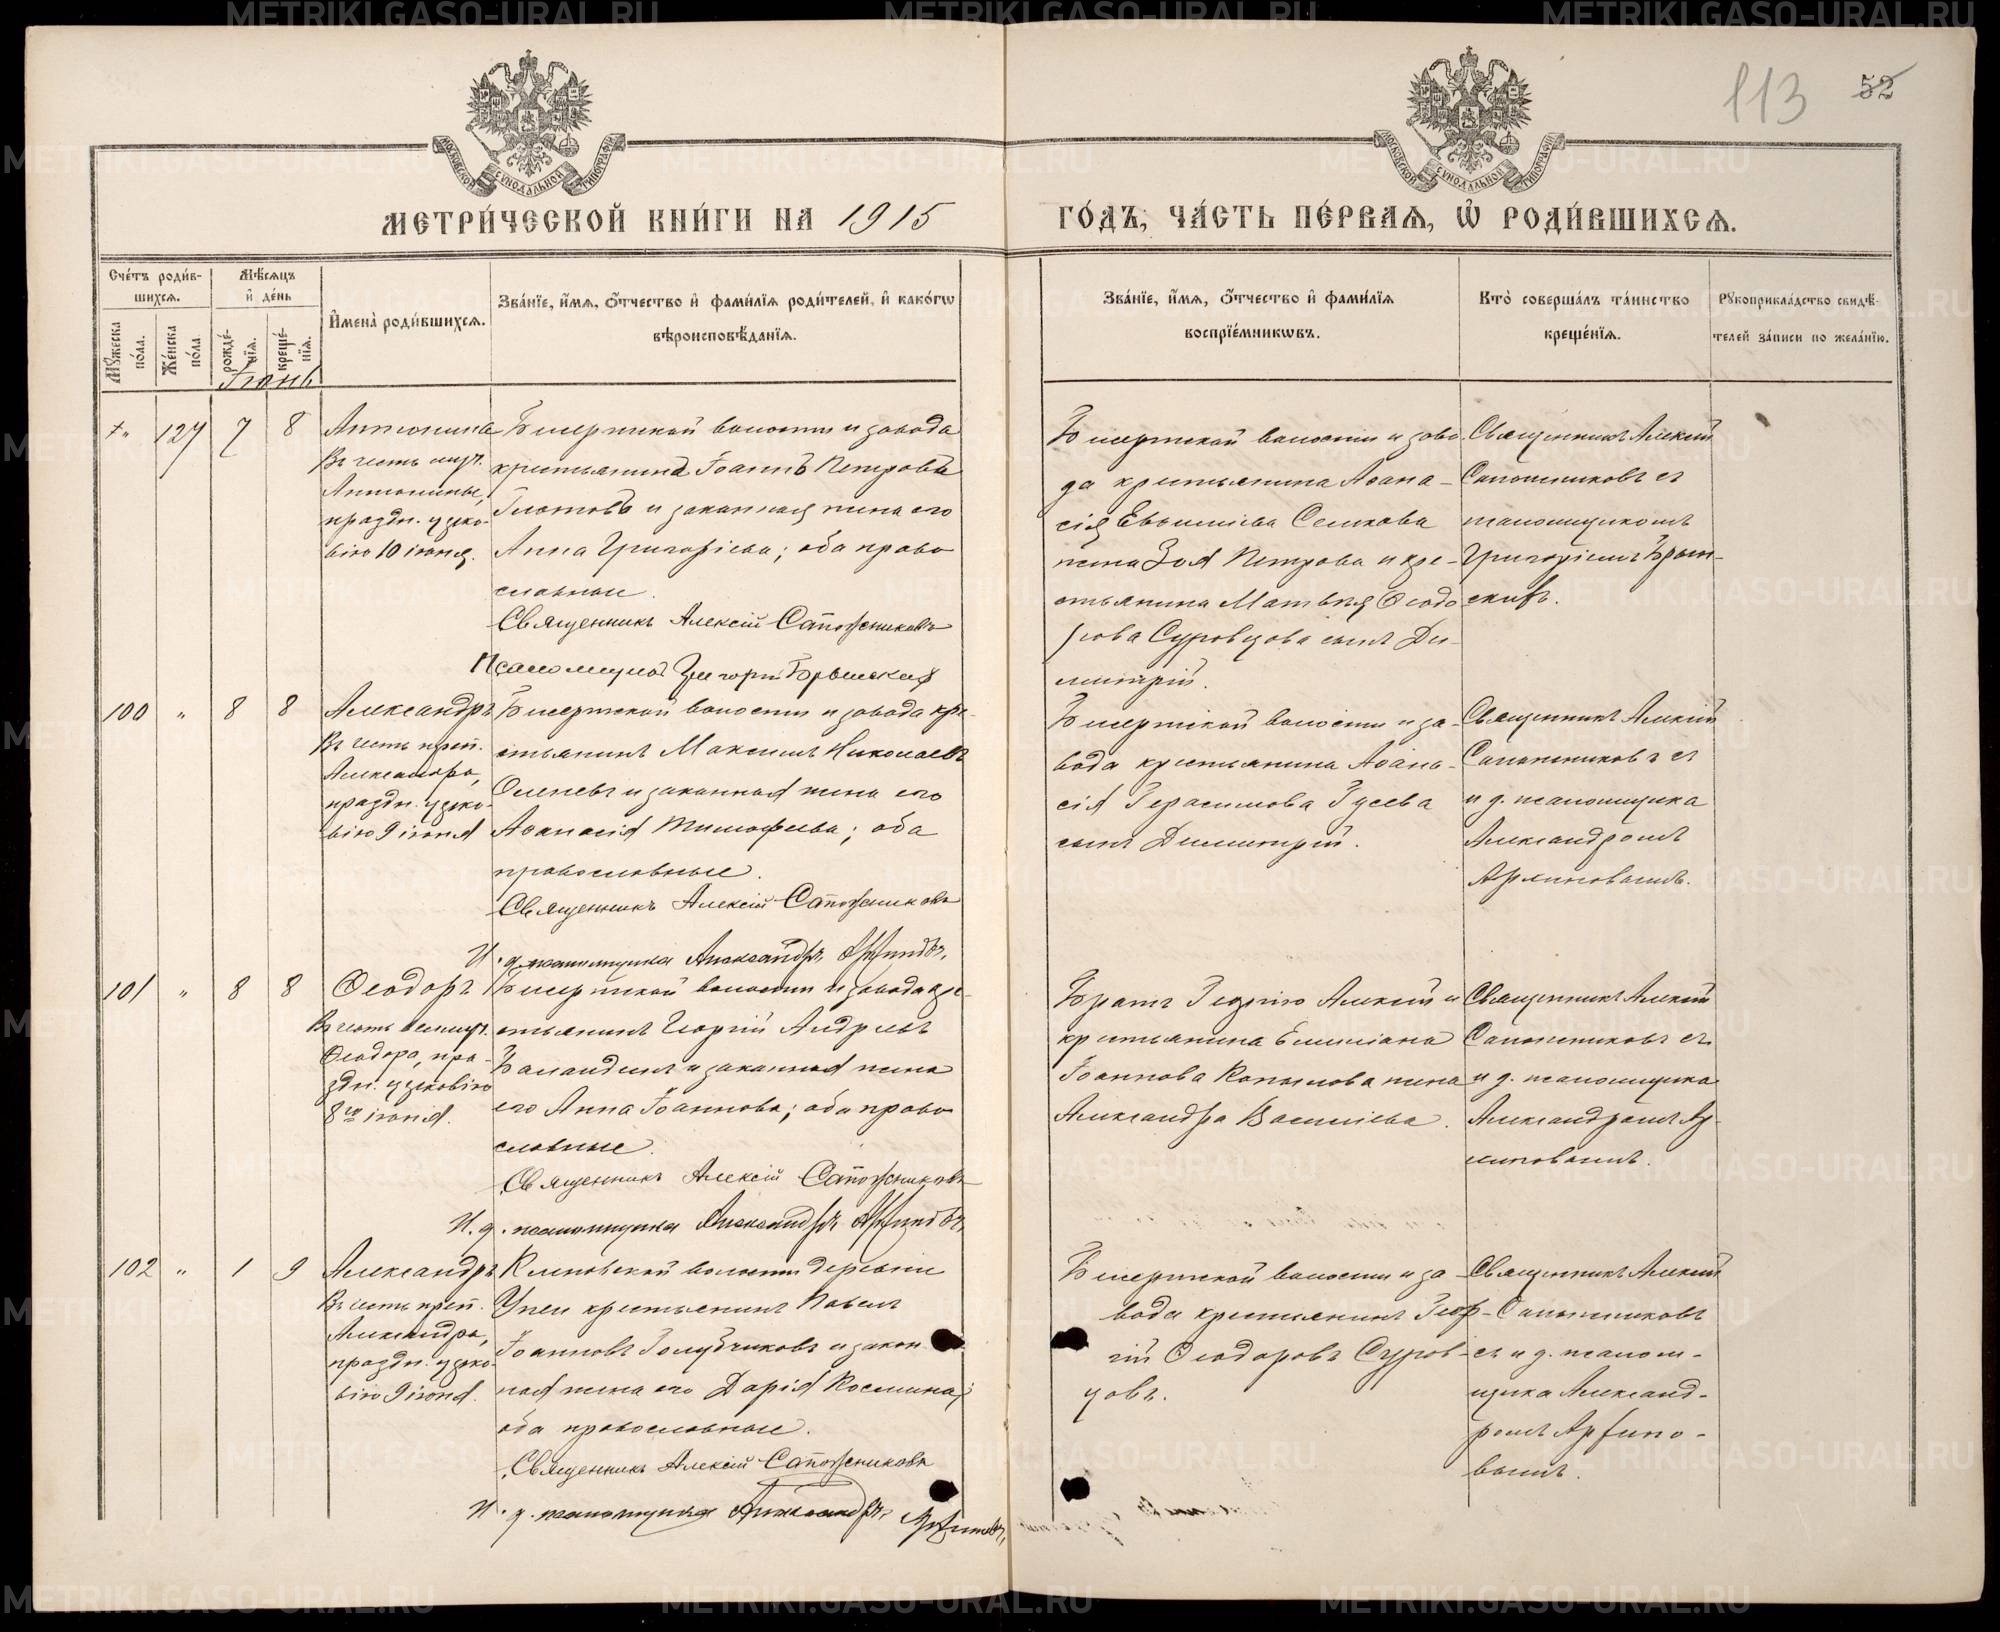 113 52
МОСКОВСКОЙ СѴНОДАЛЬНОЙ ТИПОГРАФІИ
МОСКОВСКОЙ СѴНОДАЛЬНОЙ ТИПОГРАФІИ
МЕТРИ́ЧЕСКОЙ КНИ́ГИ НА 1915 ГО́ДЪ, ЧА́СТЬ ПЕ́РВАѦ, Ѡ҆ РОДИ́ВШИХСѦ.
Сче́тъ роди́в-
шихсѧ.
Мꙋ́жеска по́ла.
Же́нска по́ла.
Мѣ́сѧцъ
и҆ де́нь
рожде́-
нїѧ.
креще́-
нїѧ.
Іюнь
И҆мена̀ роди́вшихсѧ.
Зва́нїе, и҆́мѧ, ѻ҆́тчество и҆ фами́лїѧ роди́телей, и҆ како́гѡ
вѣроисповѣ́данїѧ.
Зва́нїе, и҆́мѧ, ѻ҆́тчество и҆ фами́лїѧ
воспрїе́мникѡвъ.
Кто̀ соверша́лъ та́инство
креще́нїѧ.
Рꙋкоприкла́дство свидѣ́-
телей за́писи по жела́нїю.
127 7 8
Антонина
Въ честь муч.
Антонины,
праздн. церко-
вію 10 іюня.
Бисертской волости и завода
крестьянинъ Іоаннъ Петровъ
Глотовъ и законная жена его
Анна Григоріева; оба право
славные.
Священникъ Алексій Сапожниковъ
Псаломщикъ Григорій
Бисертской волости и заво
да крестьянина Аѳана-
сія Евѳиміева Селкова
жена Зоя Петрова и кре-
стьянина Матвѣя Ѳеодо
рова Суровцова сынъ Ди-
митрій.
Священникъ Алексій
Сапожниковъ съ
псаломщикомъ
Григоріемъ
100 " 8 8
Александръ
Въ честь преп.
Александра,
праздн. церко-
вію 9 іюня
Бисертской волости и завода кре-
стьянинъ Максимъ Николаевъ
Оленевъ и законная жена его
Аѳанасія Тимофеева; оба
православные.
Священникъ Алексій Сапожниковъ
И. д. псаломщика Александръ Архиповъ.
Бисертской волости и за-
вода крестьянина Аѳана-
сія Герасимова Гусева
сынъ Димитрій.
Священникъ Алексій
Сапожниковъ съ
и д. псаломщика
Александромъ
Архиповымъ.
101 " 8 8
Ѳеодоръ
Въ честь великмуч.
Ѳеодора, пра-
здн. церковію
8го іюня.
Бисертской волости и завода кре-
стьянинъ Георгій Андреевъ
Баландинъ и законная жена
его Анна Іоаннова; оба право
славные.
Священникъ Алексій Сапожниковъ
И. д. псаломщика Александръ Архиповъ.
Братъ Георгію Алексій и
крестьянина Емиліана
Іоаннова Копылова жена
Александра Васильева.
Священникъ Алексій
Сапожниковъ съ
и д. псаломщика
Александромъ Ар-
хиповымъ.
102 " 1 9
Александръ
Въ честь преп.
Александра,
праздн. церко-
вію 9 іюня.
Кленовской волости деревни
крестьянинъ Павелъ
Іоанновъ Голубчиковъ и закон
ная жена его Дарія Космина;
оба православные.
Священникъ Алексій Сапожниковъ
И. д. псаломщика Александръ Архиповъ.
Бисертской волости и за-
вода крестьянинъ Геор-
гій Ѳеодоровъ Суров-
цовъ.
Священникъ Алексій
Сапожниковъ
съ и д. псалом-
щика Александ-
ромъ Архипо-
вымъ.
METRIKI.GASO-URAL.RU